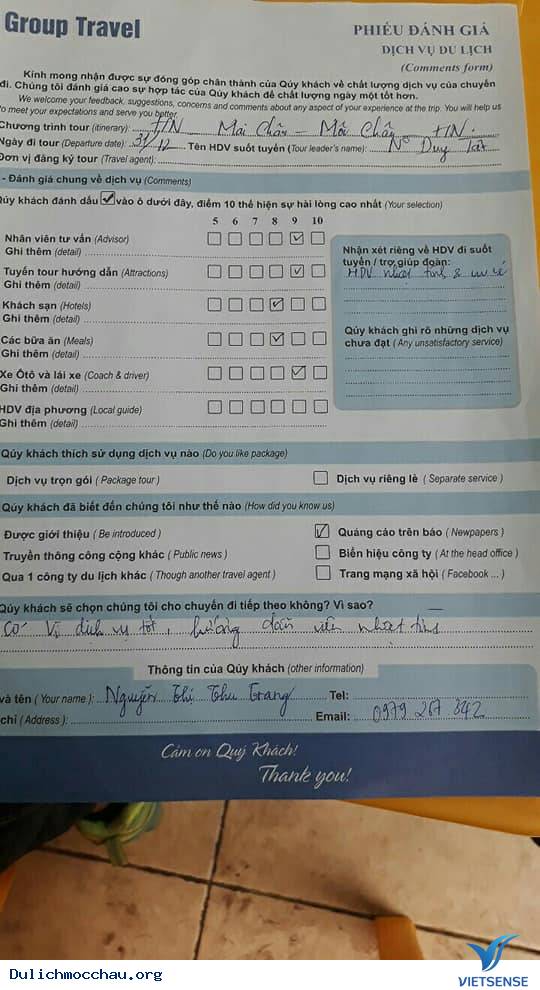 Group Travel
PHIẾU ĐÁNH GIÁ
DỊCH VỤ DU LỊCH
(Comments form)
Kính mong nhận được sự đóng góp chân thành của Qúy khách về chất lượng dịch vụ của chuyến
đi. Chúng tôi đánh giá cao sự hợp tác của Qúy khách để chất lượng ngày một tốt hơn.
We welcome your feedback, suggestions, concerns and comments about any aspect of your experience at the trip. You will help us
to meet your expectations and serve you better.
Chương trình tour (itinerary): HN Mai Châu - Mộc Châu HN.
Ngày đi tour (Departure date): 31/12 Tên HDV suốt tuyến (Tour leader's name): Duy
Đơn vị đăng ký tour (Travel agent):
- Đánh giá chung về dịch vụ (Comments)
Qúy khách đánh dấu vào ô dưới đây, điểm 10 thể hiện sự hài lòng cao nhất (Your selection)
5 6 7 8 9 10
Nhân viên tư vấn (Advisor)
Ghi thêm (detail)
Tuyến tour hướng dẫn (Attractions)
Ghi thêm (detail)
Khách sạn (Hotels)
Ghi thêm (detail)
Các bữa ăn (Meals)
Ghi thêm (detail)
Xe Ôtô và lái xe (Coach & driver)
Ghi thêm (detail)
HDV địa phương (Local guide)
Ghi thêm (detail)
Nhận xét riêng về HDV đi suốt
tuyến / trợ giúp đoàn:
HDV nhiệt tình & vui vẻ
Qúy khách ghi rõ những dịch vụ
chưa đạt (Any unsatisfactory service)
Qúy khách thích sử dụng dịch vụ nào (Do you like package)
Dịch vụ trọn gói (Package tour) Dịch vụ riêng lẻ (Separate service)
Qúy khách đã biết đến chúng tôi như thế nào (How did you know us)
Được giới thiệu (Be introduced) Quảng cáo trên báo (Newpapers)
Truyền thông công cộng khác (Public news) Biển hiệu công ty (At the head office)
Qua 1 công ty du lịch khác (Though another travel agent) Trang mạng xã hội (Facebook ...)
Qúy khách sẽ chọn chúng tôi cho chuyến đi tiếp theo không? Vì sao?
Có Vì dịch vụ tốt, hướng dẫn viên nhiệt tình
Thông tin của Qúy khách (other information)
và tên (Your name): Nguyễn Thị Thu Trang Tel:
chỉ (Address): Email: 0979 267 842
Cảm ơn Quý Khách!
Thank you!
Dulichmocchau.org
VIETSENSE